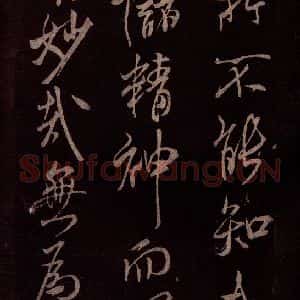 所不能知
儲精神而
妙哉無為
Shufawang.CN